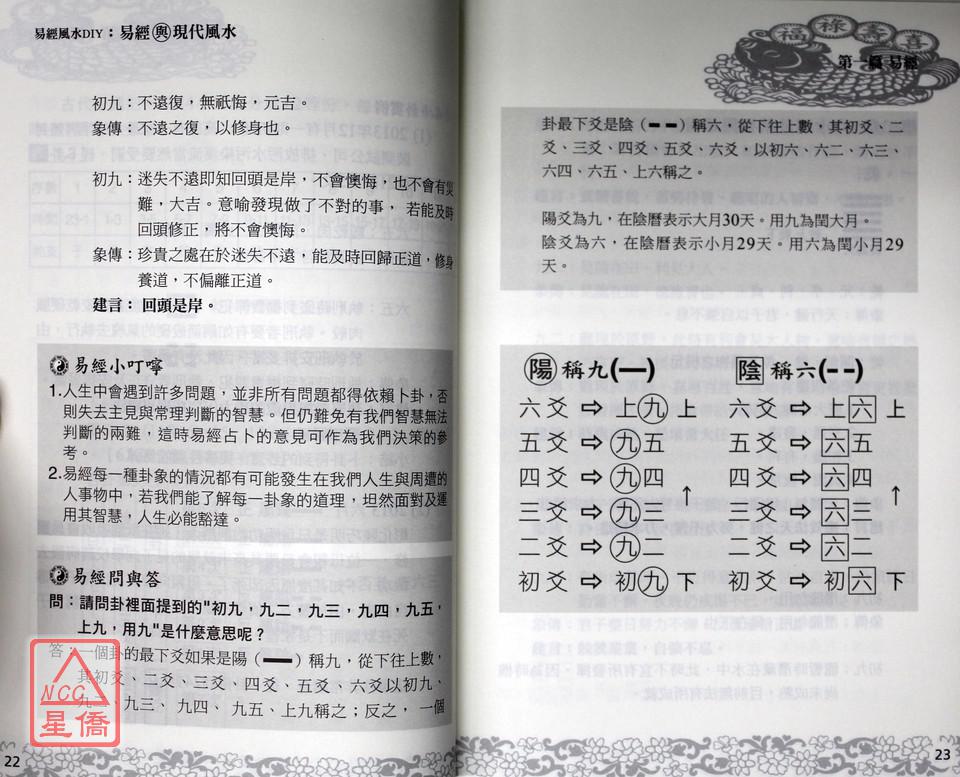 易經風水DIY：易經與現代風水
初九：不遠復，無祇悔，元吉。
象傳：不遠之復，以修身也。
初九：迷失不遠即知回頭是岸，不會懊悔，也不會有災
難，大吉。意喻發現做了不對的事， 若能及時
回頭修正，將不會懊悔。
象傳：珍貴之處在於迷失不遠，能及時回歸正道，修身
養道，不偏離正道。
建言： 回頭是岸。
易經小叮嚀
1.人生中會遇到許多問題，並非所有問題都得依賴卜卦，否
則失去主見與常理判斷的智慧。但仍難免有我們智慧無法
判斷的兩難，這時易經占卜的意見可作為我們決策的參
考。
2.易經每一種卦象的情況都有可能發生在我們人生與周遭的
人事物中，若我們能了解每一卦象的道理，坦然面對及運
用其智慧，人生必能豁達。
易經問與答
問：請問卦裡面提到的"初九，九二，九三，九四，九五，
上九，用九"是什麼意思呢？
答：一個卦的最下爻如果是陽（━）稱九，從下往上數，
其初爻、二爻、三爻、四爻、五爻、六爻以初九、
九二、九三、 九四、 九五、上九稱之；反之， 一個
NCC
星僑
22
福祿壽喜
第一篇 易經
卦最下爻是陰（━ ━）稱六，從下往上數，其初爻、二
爻、三爻、四爻、五爻、六爻，以初六、六二、六三、
六四、六五、上六稱之。
陽爻為九，在陰曆表示大月30天。用九為閏大月。
陰爻為六，在陰曆表示小月29天。用六為閏小月29
天。
陽稱九(━)
六爻⇨上九 上
五爻⇨九五
四爻⇨九四
三爻⇨九三
二爻⇨九二
初爻⇨初九 下
↑
陰稱六(--)
六爻⇨上六 上
五爻⇨六五
四爻⇨六四
三爻⇨六三
二爻⇨六二
初爻⇨初六 下
↑
23